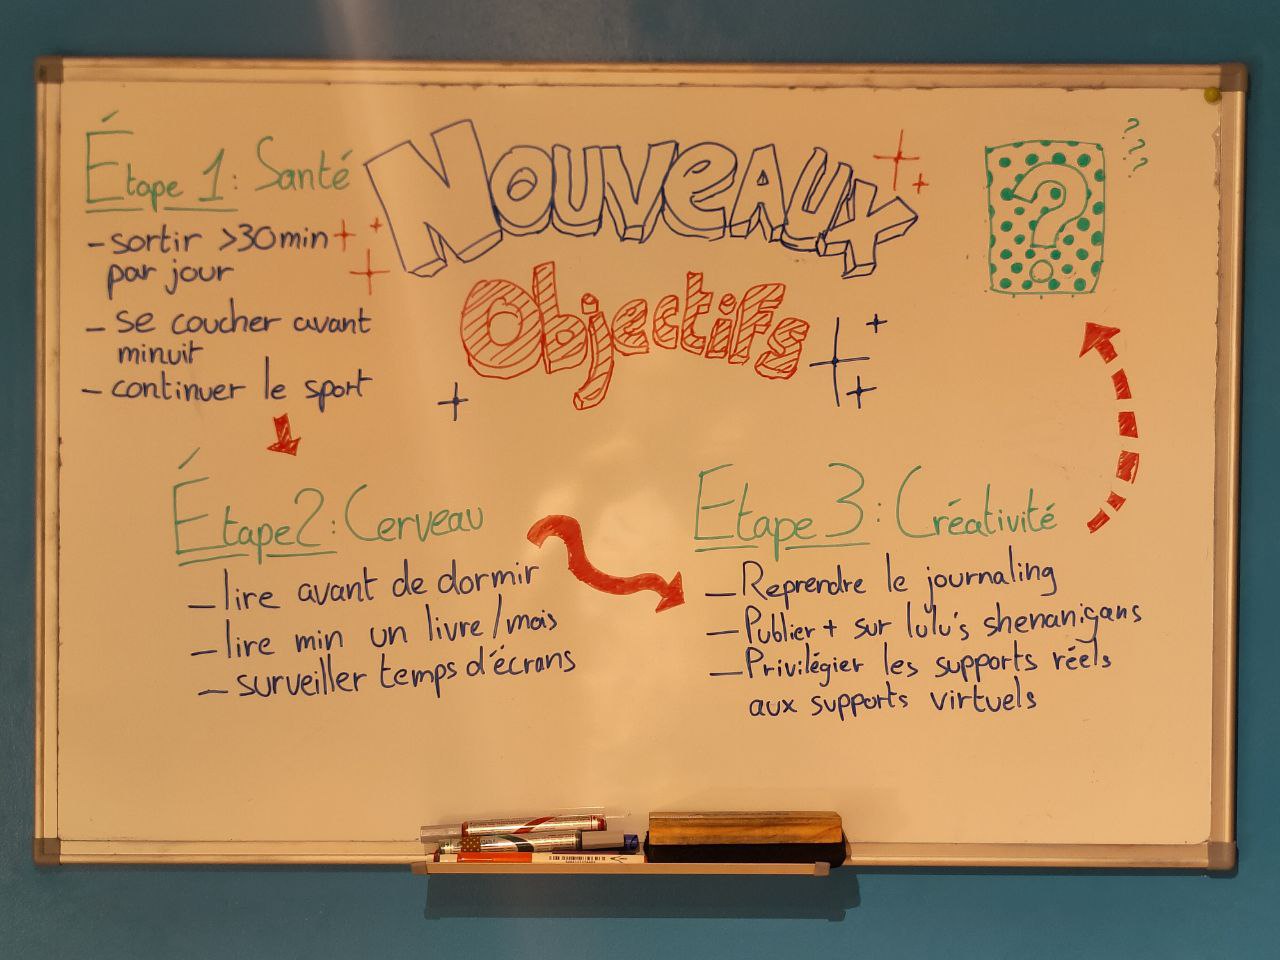 Nouveaux
Objectifs
Étape 1: Santé
- sortir >30min
par jour
- se coucher avant
minuit
- continuer le sport
Étape 2: Cerveau
- lire avant de dormir
- lire min un livre/mois
- surveiller temps d'écrans
Etape 3: Créativité
- Reprendre le journaling
- Publier + sur lulu's shenanigans
- Privilégier les supports réels
aux supports virtuels
?
???